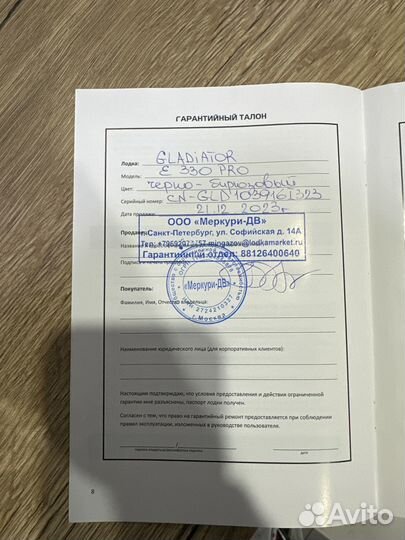 ГАРАНТИЙНЫЙ ТАЛОН
Лодка: GLADIATOR
Модель: E 330 PRO
Цвет: черно-бирюзовый
Серийный номер: CN-GLD1039161323
Дата продажи: 21.12.2023г
ООО «Меркури-ДВ»
г.Санкт-Петербург, ул. Софийская д. 14А
Гарантийный отдел: 88126400640
«Меркури-ДВ»
г. Москва
Покупатель:
Фамилия, Имя, Отчество владельца:
Наименование юридического лица (для корпоративных клиентов):
Настоящим подтверждаю, что условия предоставления и действия ограниченной
гарантии мне разъяснены, паспорт лодки получен.
Согласен с тем, что право на гарантийный ремонт предоставляется при соблюдении
правил эксплуатации, изложенных в руководстве пользователя.
дата
8
Avito